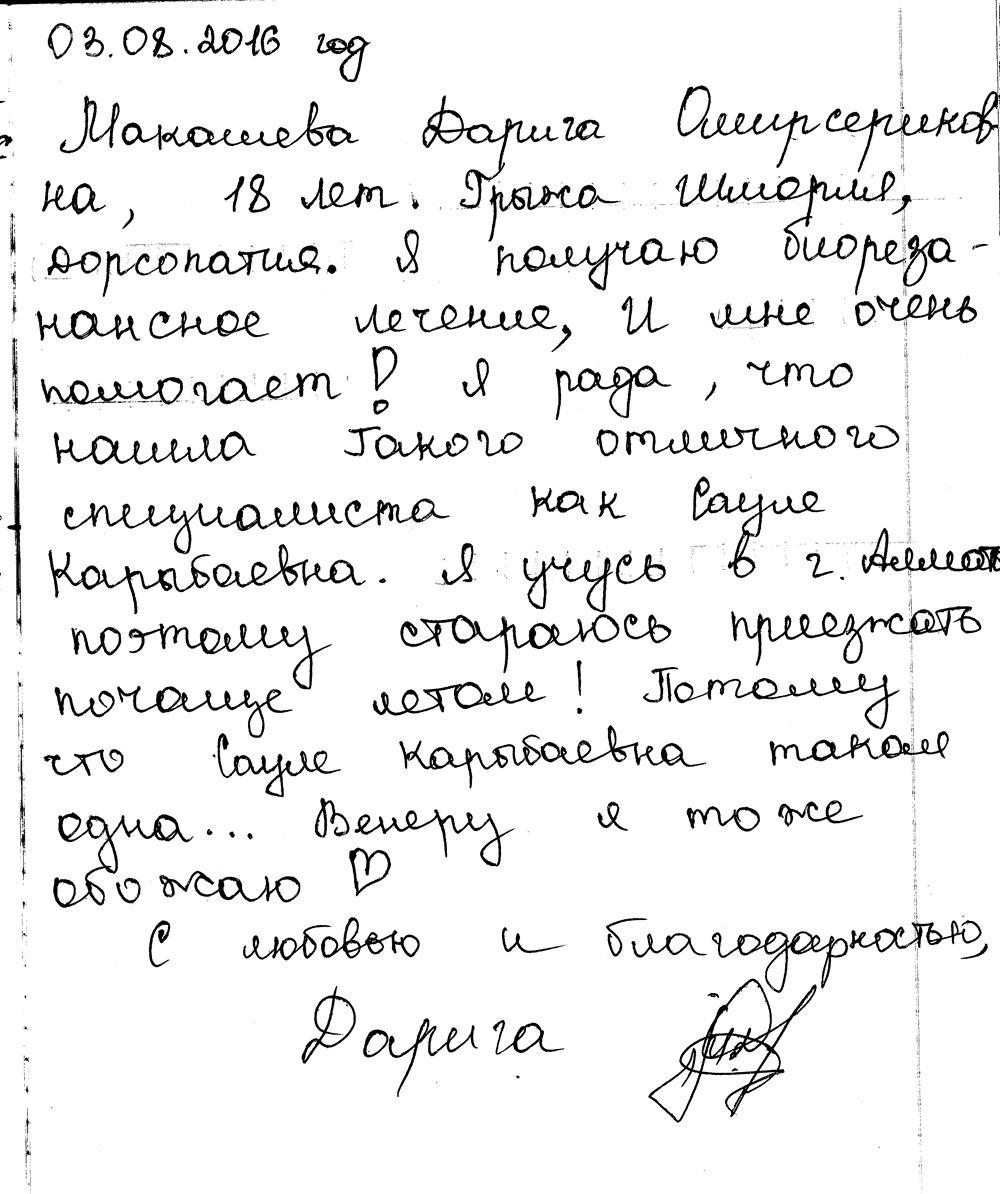 03.08.2016 год
Макашева Дарига Омирсериков
на, 18 лет. Грыжа Шморля,
дорсопатия. Я получаю биореза-
нансное лечение, И мне очень
помогает! Я рада, что
нашла такого отличного
специалиста как Сауле
Карыбаевна. Я учусь в г. Алмат
поэтому стараюсь приезжать
почаще летом! Потому
что Сауле Карыбаевна такая
одна... Венеру я тоже
обожаю ♡
С любовью и благодарностью,
Дарига